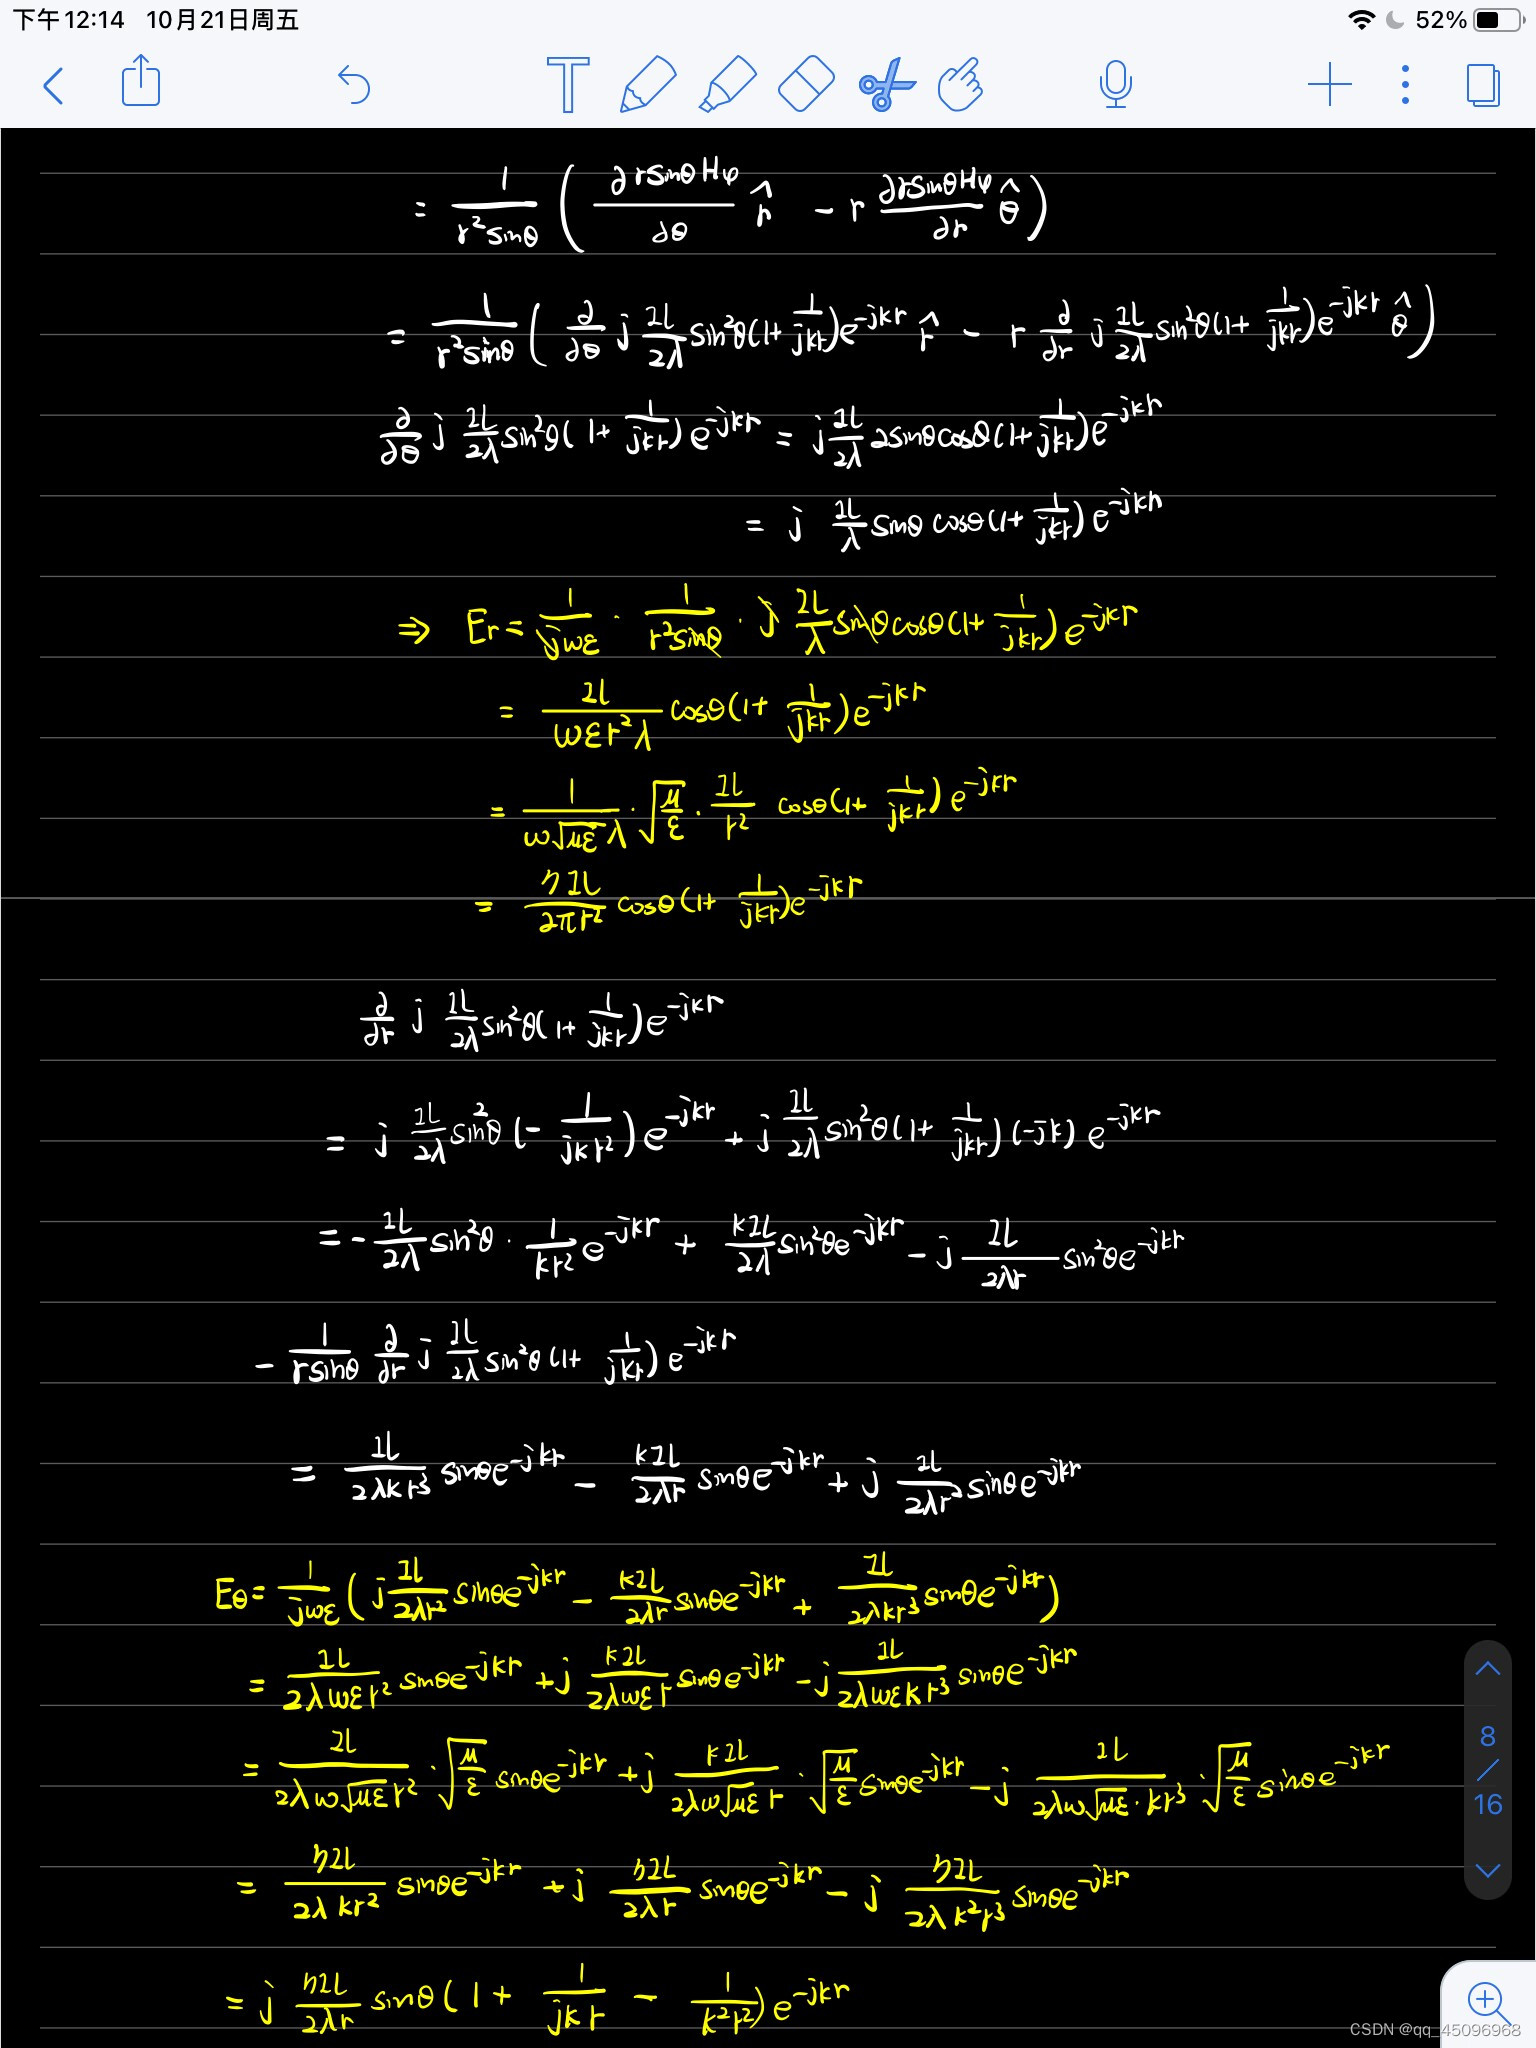 下午12:14 10月21日周五
52%
= 1/(r²sinθ) ( ∂rsinθHφ/∂θ r̂ - r ∂rsinθHφ/∂r θ̂ )
= 1/(r²sinθ) ( ∂/∂θ j Il/2λ sin²θ(1+ 1/jkr)e^-jkr r̂ - r ∂/∂r j Il/2λ sin²θ(1+ 1/jkr)e^-jkr θ̂ )
∂/∂θ j Il/2λ sin²θ(1+ 1/jkr)e^-jkr = j Il/2λ 2sinθcosθ(1+ 1/jkr)e^-jkr
= j Il/λ sinθcosθ(1+ 1/jkr)e^-jkr
⇒ Er = 1/jωε · 1/(r²sinθ) · j Il/λ sinθcosθ(1+ 1/jkr)e^-jkr
= Il/(ωεr²λ) cosθ(1+ 1/jkr)e^-jkr
= 1/(ω√(με)λ) · √(μ/ε) · Il/r² cosθ(1+ 1/jkr)e^-jkr
= ηIl/(2πr²) cosθ(1+ 1/jkr)e^-jkr
∂/∂r j Il/2λ sin²θ(1+ 1/jkr)e^-jkr
= j Il/2λ sin²θ(- 1/jkr²)e^-jkr + j Il/2λ sin²θ(1+ 1/jkr)(-jk)e^-jkr
= - Il/2λ sin²θ · 1/kr² e^-jkr + kIl/2λ sin²θe^-jkr - j Il/2λr sin²θe^-jkr
- 1/(rsinθ) ∂/∂r j Il/2λ sin²θ(1+ 1/jkr)e^-jkr
= Il/(2λkr³) sinθe^-jkr - kIl/(2λr) sinθe^-jkr + j Il/(2λr²) sinθe^-jkr
Eθ = 1/jωε ( j Il/(2λr²) sinθe^-jkr - kIl/(2λr) sinθe^-jkr + Il/(2λkr³) sinθe^-jkr )
= Il/(2λωεr²) sinθe^-jkr + j kIl/(2λωεr) sinθe^-jkr - j Il/(2λωεkr³) sinθe^-jkr
= Il/(2λω√(με)r²) · √(μ/ε) sinθe^-jkr + j kIl/(2λω√(με)r) · √(μ/ε) sinθe^-jkr - j Il/(2λω√(με)·kr³) · √(μ/ε) sinθe^-jkr
= ηIl/(2λkr²) sinθe^-jkr + j ηIl/(2λr) sinθe^-jkr - j ηIl/(2λk²r³) sinθe^-jkr
= j ηIl/(2λr) sinθ(1+ 1/jkr - 1/k²r²)e^-jkr
8
/
16
CSDN @qq_45096968